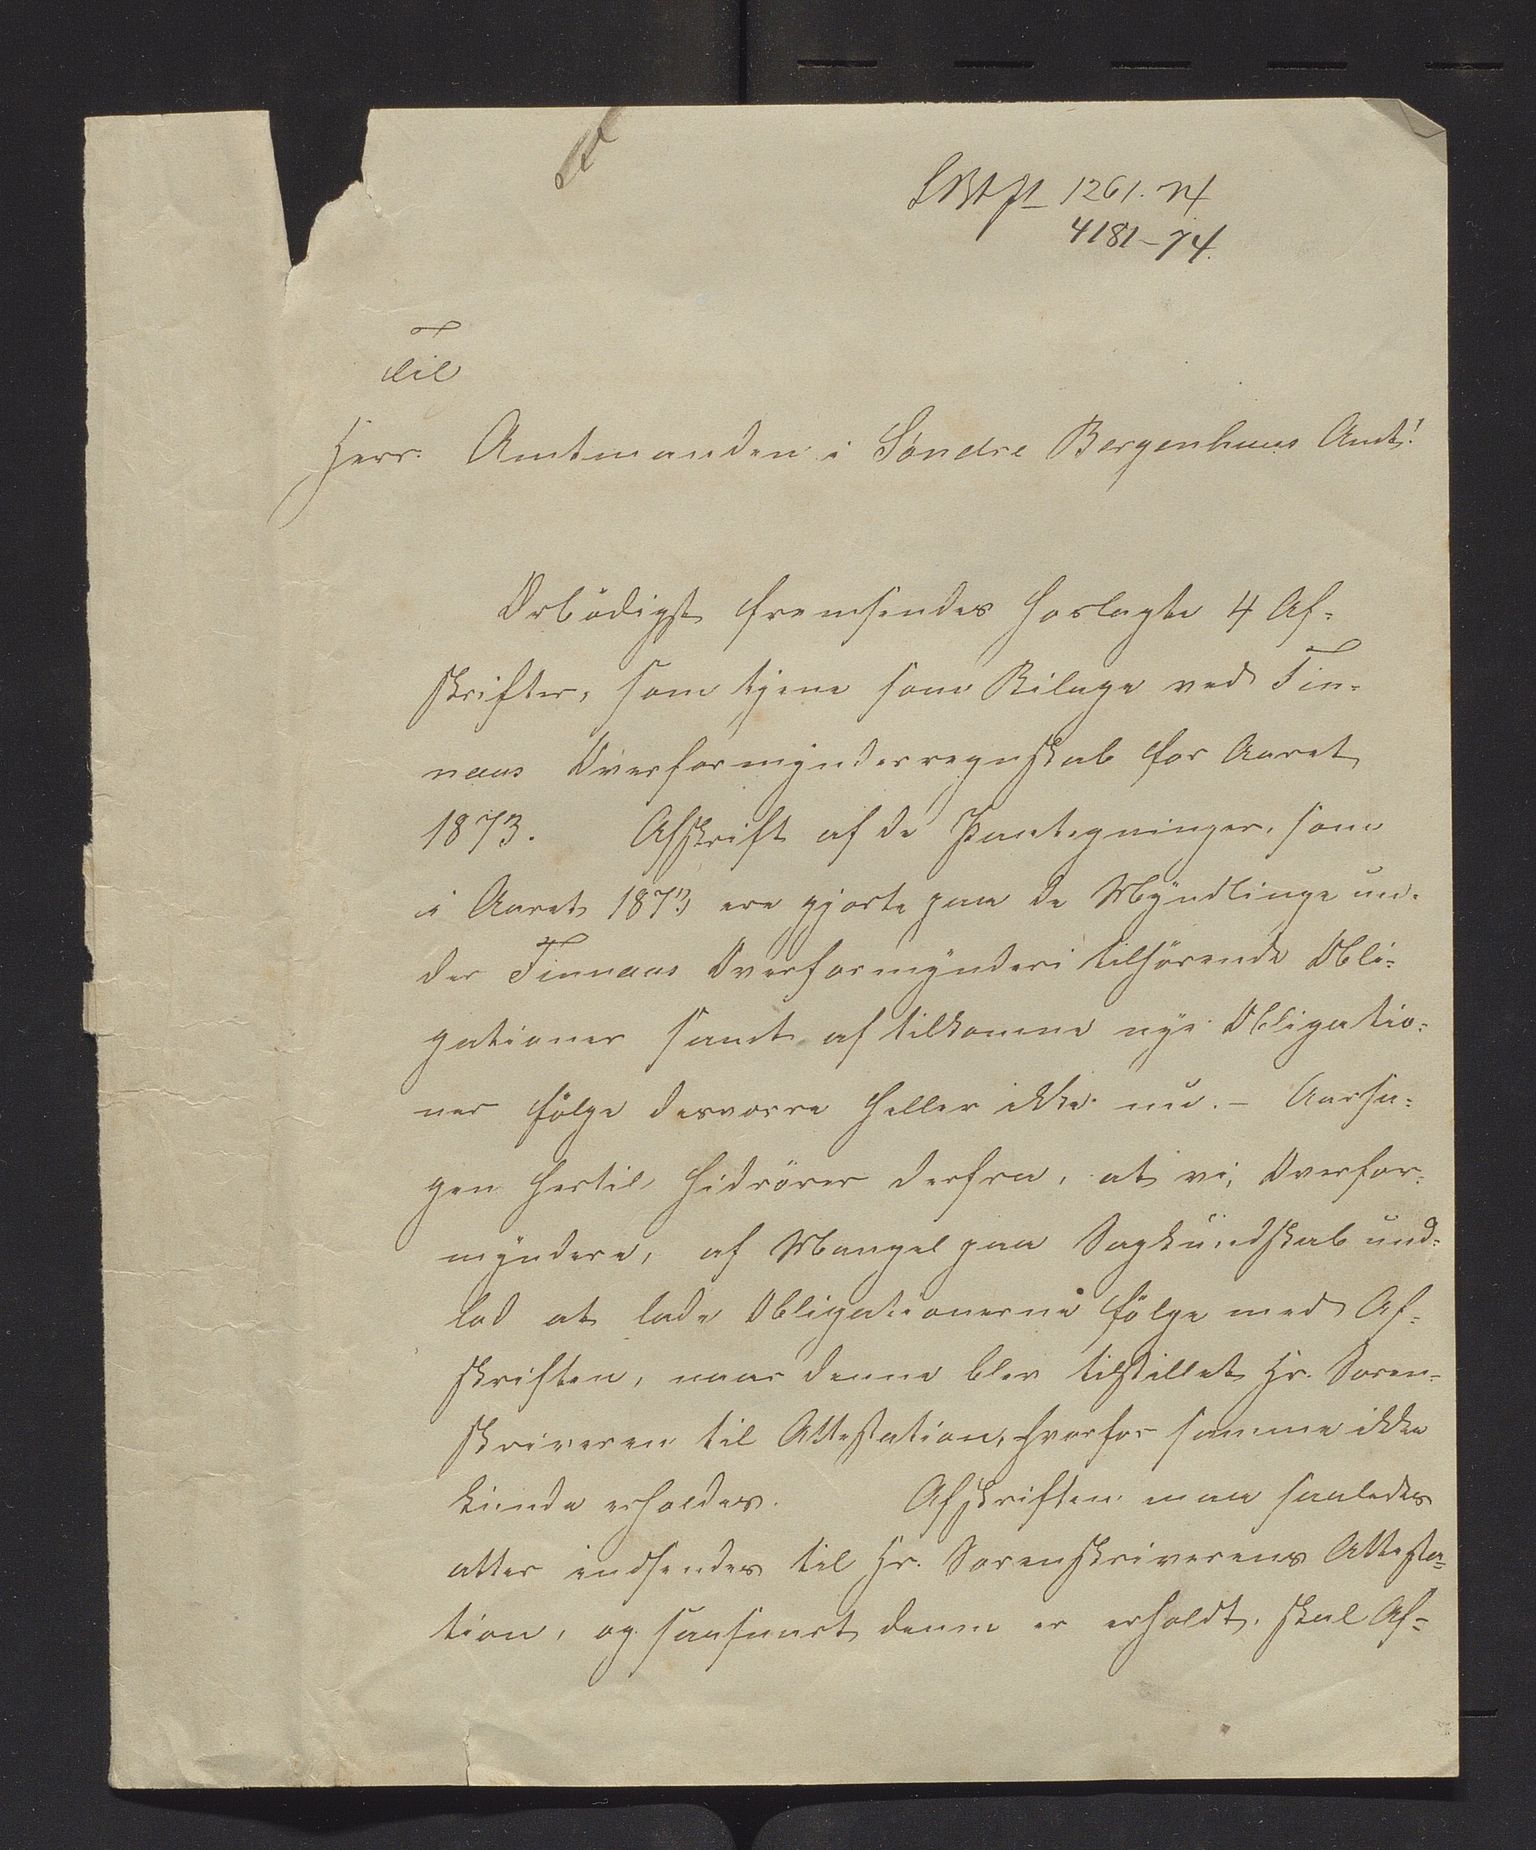 1261.74
4181-74.
Til
Herr Amtmanden i Søndre Bergenhuus Amt!
Ærbödigst fremsendes hoslagte 4 Af-
skrifter, som tjene som Bilage ved Fin-
naas Overformynderregnskab for Aaret
1873. Afskrift af de Paategninger, som
i Aaret 1873 ere gjorte paa de Myndlinge un-
der Finnaas Overformynderi tilhörende Obli-
gationer samt af tilkomne nye Obligatio-
ner fölge desværre heller ikke nu. – Aarsa-
gen hertil hidrörer derfra, at vi, Overfor-
myndere, af Mangel paa Sagkundskab und-
lod at lade Obligationerne fölge med Af-
skriften, naar denne blev tilstillet Hr. Soren-
skriveren til Attestation, hvorfor samme ikke
kunde erholdes. Afskriften maa saaledes
atter indsendes til Hr. Sorenskriverens Attesta-
tion, og saasnart denne er erholdt, skal Af-